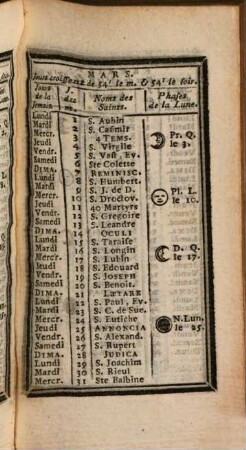 MARS.
Jours croissent de 54' le m. & 54' le soir.
Jours de la Semain.
J. des m.
Noms des Saints.
Phases de la Lune.
Lundi 1 S. Aubin
Mardi 2 S. Casimir
Mercr. 3 4 TEMS. Pr. Q. le 3.
Jeudi 4 S. Virgile
Vendr. 5 S. Ev.
Samedi 6 Ste Colette
DIMA. 7 REMINISC.
Lundi 8 S. Humbert.
Mardi 9 S. J. de D. Pl. L. le 10.
Mercr. 10 S. Droctov.
Jeudi 11 40 Martyrs
Vendr. 12 S. Gregoire
Samedi 13 S. Leandre
DIMA. 14 OCULI
Lundi 15 S. Taraise
Mardi 16 S. Longin D. Q. le 17.
Mercr. 17 S. Lubin
Jeudi 18 S. Edouard
Vendr. 19 S. JOSEPH
Samedi 20 S. Benoit.
DIMA. 21 LÆTARE
Lundi 22 S. Paul, Ev.
Mardi 23 S. C. de Sue.
Mercr. 24 S. Eutiche N. Lun. le 25.
Jeudi 25 ANNONCIA
Vendr. 26 S. Alexand.
Samedi 27 S. Rupert
DIMA. 28 JUDICA
Lundi 29 S. Joachim
Mardi 30 S. Rieul
Mercr. 31 Ste Balbine